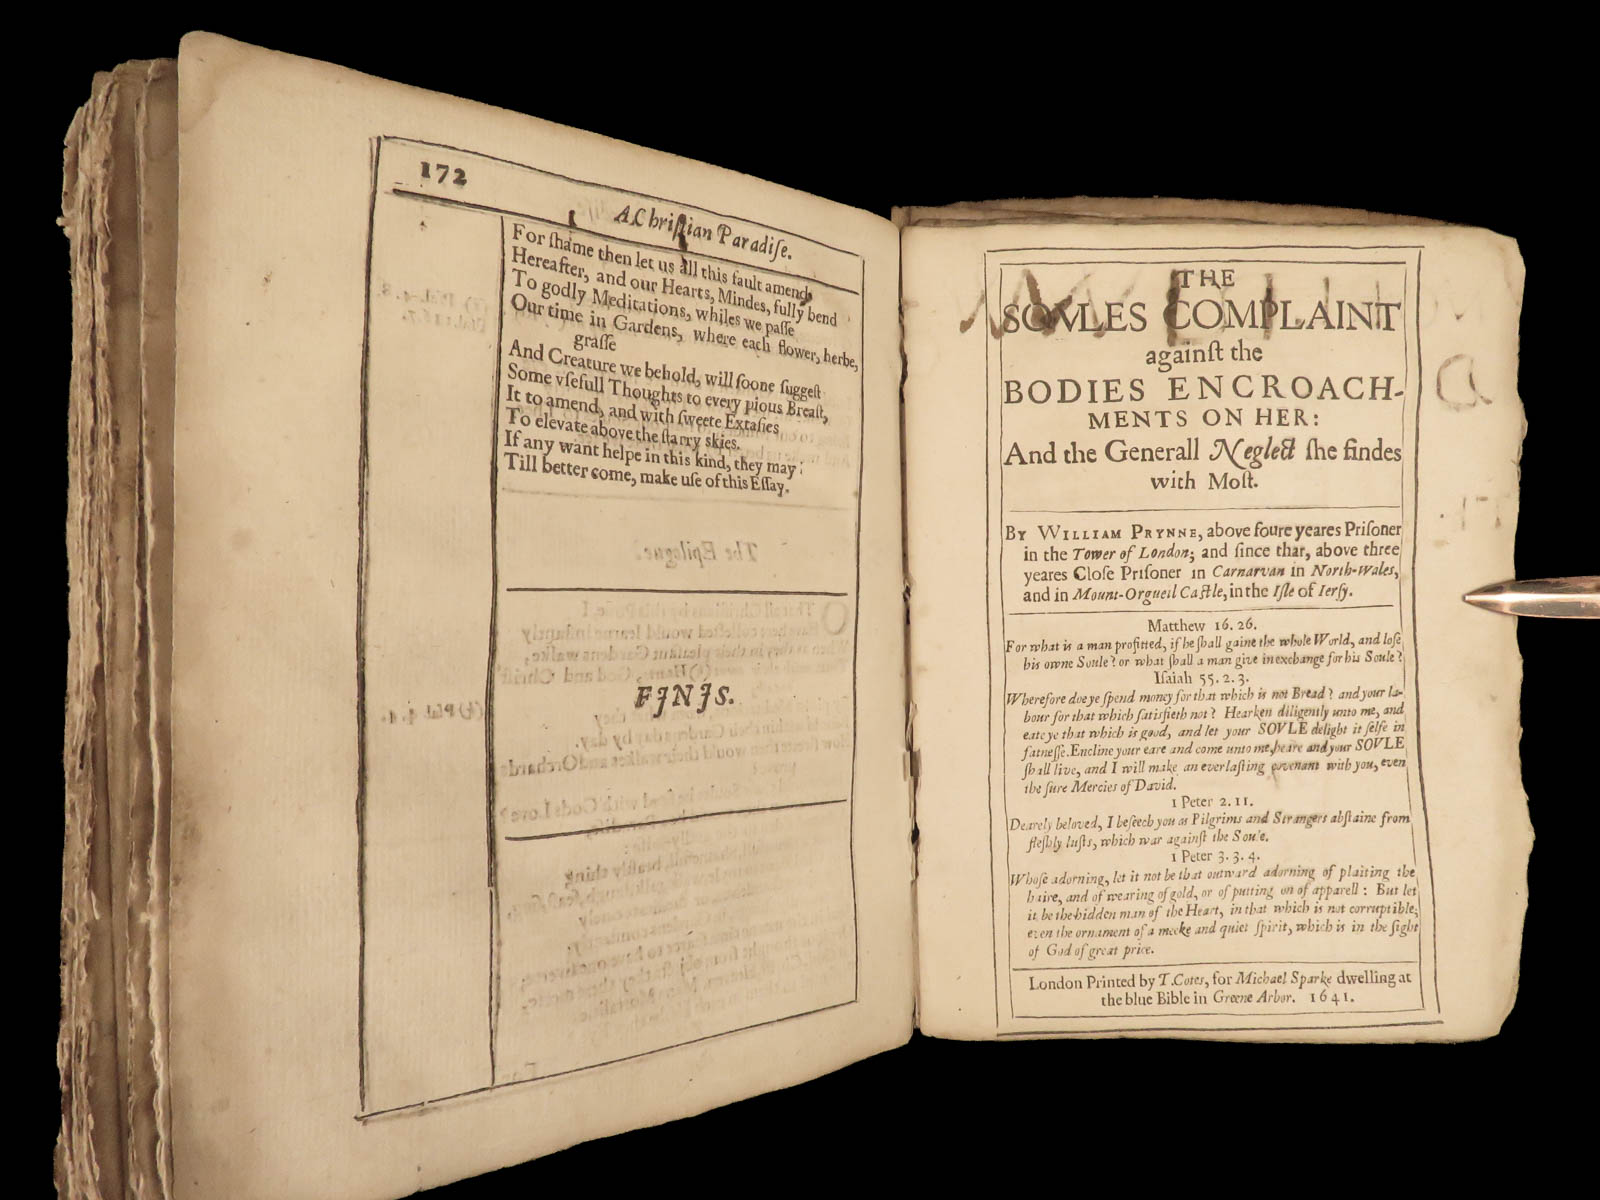 172
A Chriſtian Paradiſe.
For ſhame then let us all this fault amend,
Hereafter, and our Hearts, Mindes, fully bend
To godly Meditations, whiles we paſſe
Our time in Gardens, where each flower, herbe,
graſſe
And Creature we behold, will ſoone ſuggeſt
Some vſefull Thoughts to every pious Breaſt,
It to amend, and with ſweete Extaſies
To elevate above the ſtarry skies.
If any want helpe in this kind, they may
Till better come, make uſe of this Eſſay.
FINIS.
THE
SOVLES COMPLAINT
againſt the
BODIES ENCROACH-
MENTS ON HER:
And the Generall Neglect ſhe findes
with Moſt.
BY WILLIAM PRYNNE, above foure yeares Priſoner
in the Tower of London; and ſince that, above three
yeares Cloſe Priſoner in Carnarvan in North-Wales,
and in Mount-Orgueil Caſtle, in the Iſle of Ierſy.
Matthew 16. 26.
For what is a man profitted, if he ſhall gaine the whole World, and loſe
his owne Soule? or what ſhall a man give in exchange for his Soule?
Iſaiah 55. 2. 3.
Wherefore doe ye ſpend money for that which is not Bread? and your la-
bour for that which ſatisfieth not? Hearken diligently unto me, and
eate ye that which is good, and let your SOVLE delight it ſelfe in
fatneſſe. Encline your eare and come unto me, heare and your SOVLE
ſhall live, and I will make an everlaſting covenant with you, even
the ſure Mercies of David.
1 Peter 2. 11.
Dearely beloved, I beſeech you as Pilgrims and Strangers abſtaine from
fleſhly luſts, which war againſt the Soule.
1 Peter 3. 3. 4.
Whoſe adorning, let it not be that outward adorning of plaiting the
haire, and of wearing of gold, or of putting on of apparell: But let
it be the hidden man of the Heart, in that which is not corruptible;
even the ornament of a meeke and quiet ſpirit, which is in the ſight
of God of great price.
London Printed by T. Cotes, for Michael Sparke dwelling at
the blue Bible in Greene Arbor. 1641.